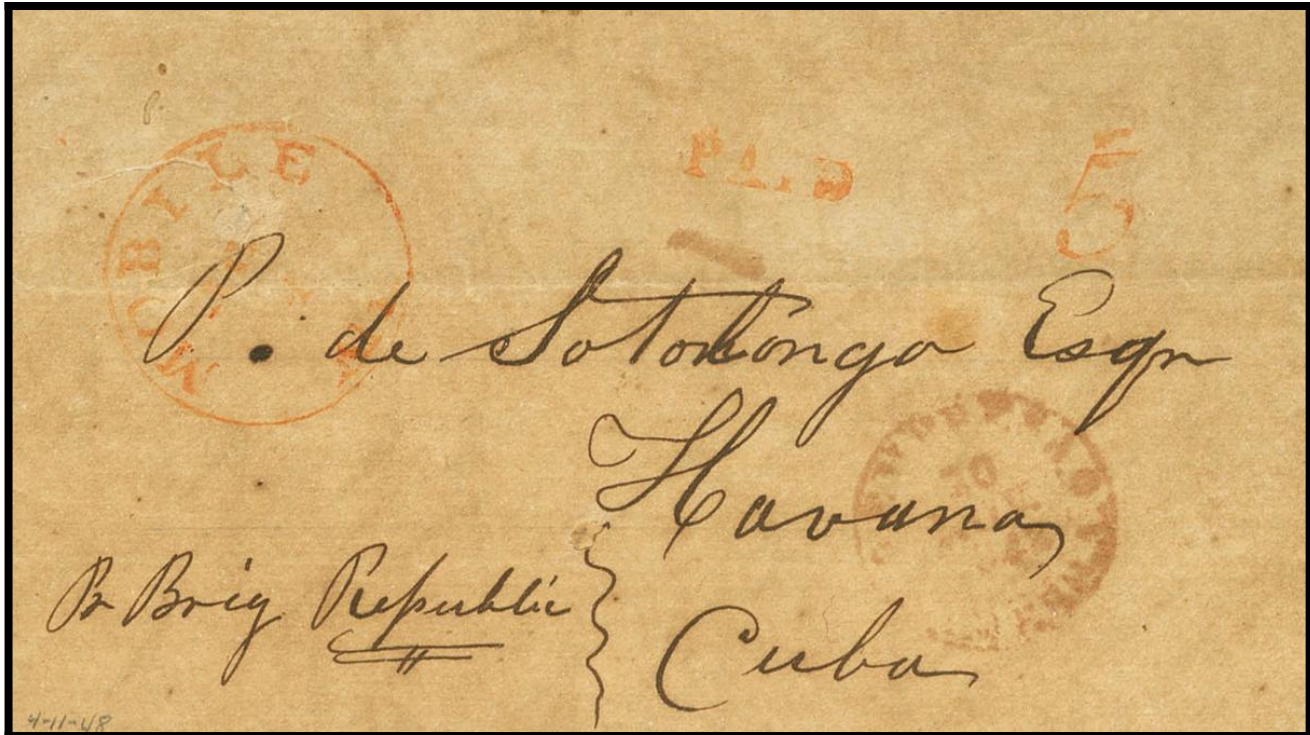 MOBILE
PAID
5
P. de Sotolongo Esqr
Havana
Cuba
Pr Brig Republic
4-11-48